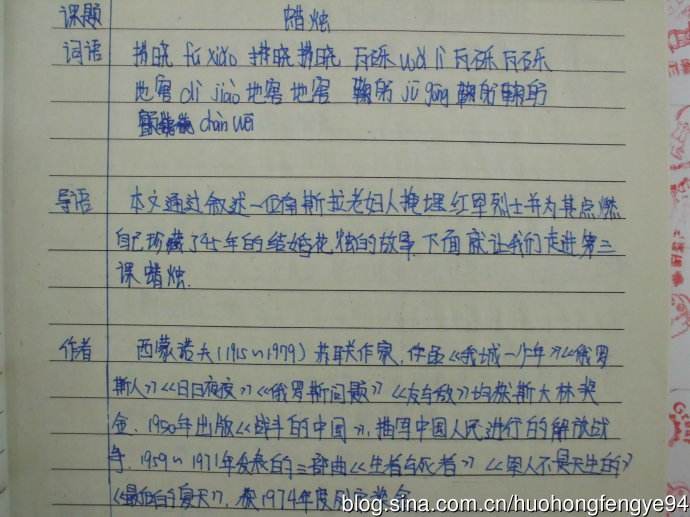 课题 蜡烛
词语 拂晓 fú xiǎo 拂晓 拂晓 瓦砾 wǎ lì 瓦砾 瓦砾
地窖 dì jiào 地窖 地窖 鞠躬 jū gōng 鞠躬 鞠躬
chàn wēi
导语 本文通过叙述一位南斯拉老妇人掩埋红军烈士并为其点燃
自己珍藏了45年的结婚花烛的故事.下面就让我们走进第三
课蜡烛.
作者 西蒙诺夫(1915~1979)苏联作家.作品《我城一少年》《俄罗
斯人》《日日夜夜》《俄罗斯问题》《友与敌》均获斯大林奖
金.1950年出版《战斗的中国》,描写中国人民进行的解放战
争.1959~1971年发表的三部曲《生者与死者》《军人不是天生的》
《最后的夏天》,获1974年度列宁奖金
blog.sina.com.cn/huohongfengye94